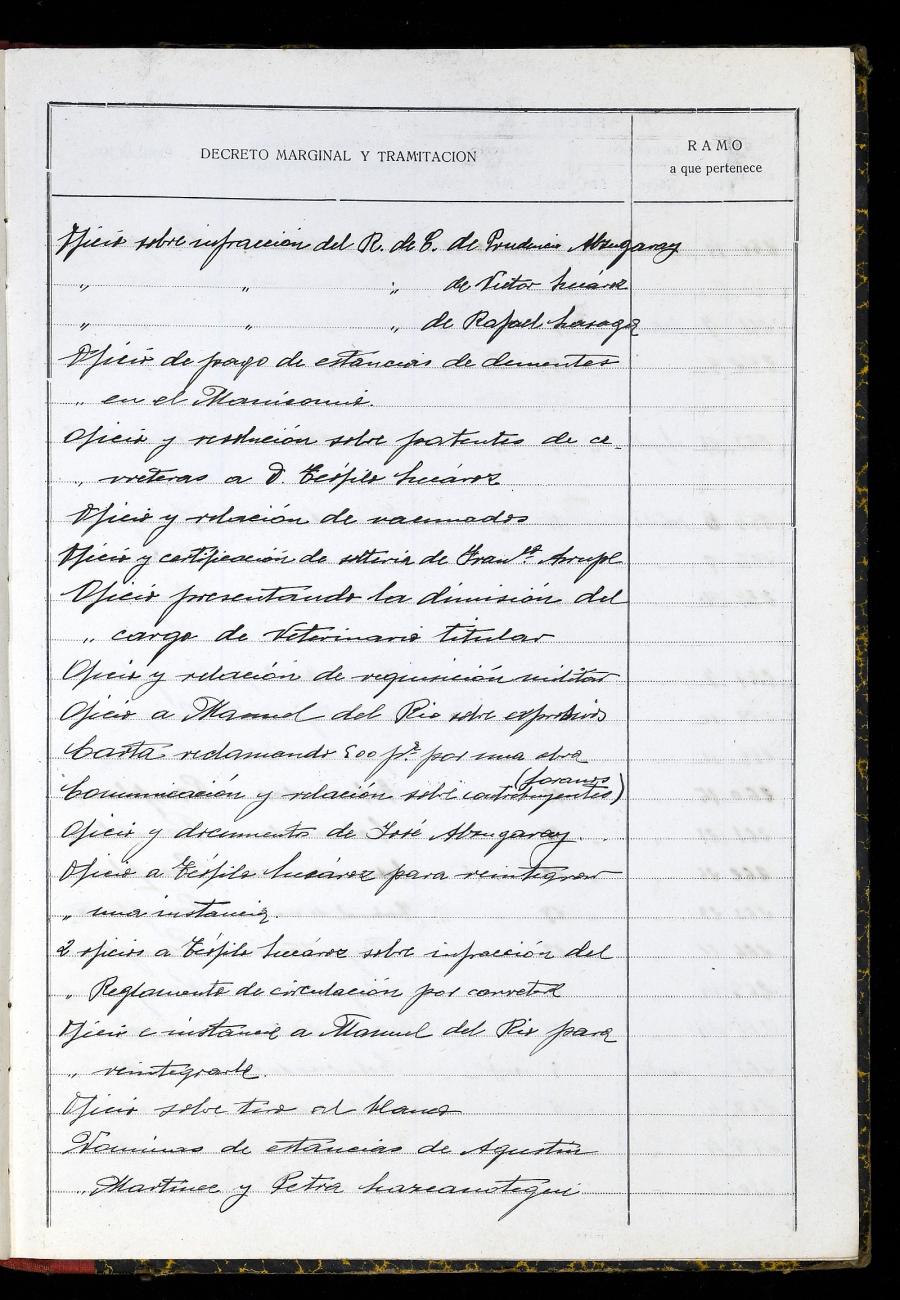 DECRETO MARGINAL Y TRAMITACION
RAMO
a que pertenece
Oficio sobre infracción del R. de C. de Prudencio Abzugaray
„ „ „ de Victor Suárez
„ „ „ de Rafael Lasaga
Oficio de pago de estancias de dementes
„ en el Manicomio.
Oficio y resolución sobre patentes de ca-
„ rreteras a D. Teófilo Suárez
Oficio y relación de vacunados
Oficio y certificación de soltería de Franco. Arrupe
Oficio presentando la dimisión del
„ cargo de Veterinario titular
Oficio y relación de requisición militar
Oficio a Manuel del Rio sobre explosivos
Carta reclamando 500 pts por una obra
Comunicación y relación sobre contribuyentes (foranos)
Oficio y documento de José Abzugaray.
Oficio a Teófilo Suáárez para reintegrar
„ una instancia.
2 oficios a Teófilo Suárez sobre infracción del
„ Reglamento de circulación por carretera
Oficio e instancia a Manuel del Rio para
„ reintegrarle.
Oficio sobre tiro al blanco
Nominas de estancias de Agustin
„ Martinez y Petra Lazcanotegui